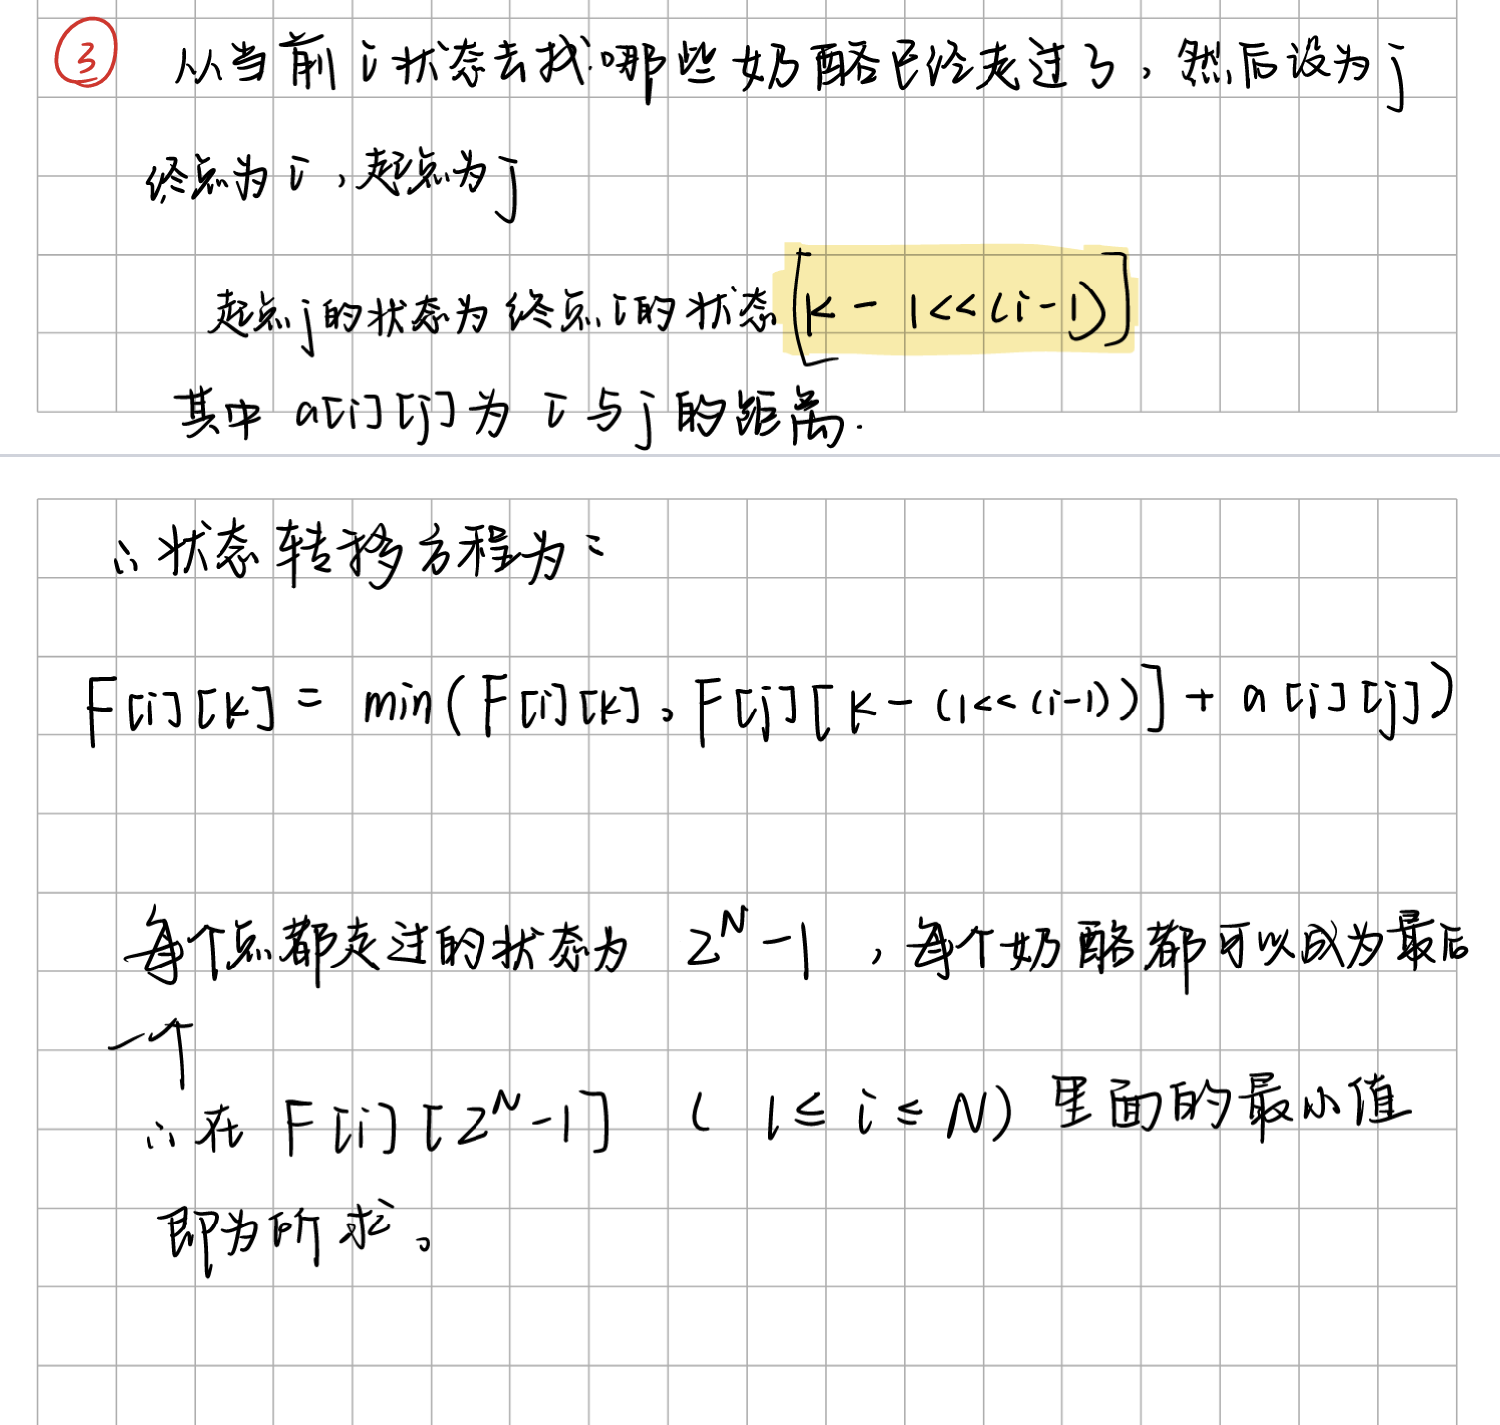 ③ 从当前i状态去找哪些奶酪已经走过了，然后设为j
终点为i，起点为j
起点j的状态为终点i的状态[k-1<<(i-1)]
其中a[i][j]为i与j的距离.
∴状态转移方程为：
F[i][k] = min(F[i][k], F[j][k-(1<<(i-1))] + a[i][j])
每个点都走过的状态为 2^N-1，每个奶酪都可以成为最后
一个
∴在 F[i][2^N-1] (1≤i≤N) 里面的最小值
即为所求。